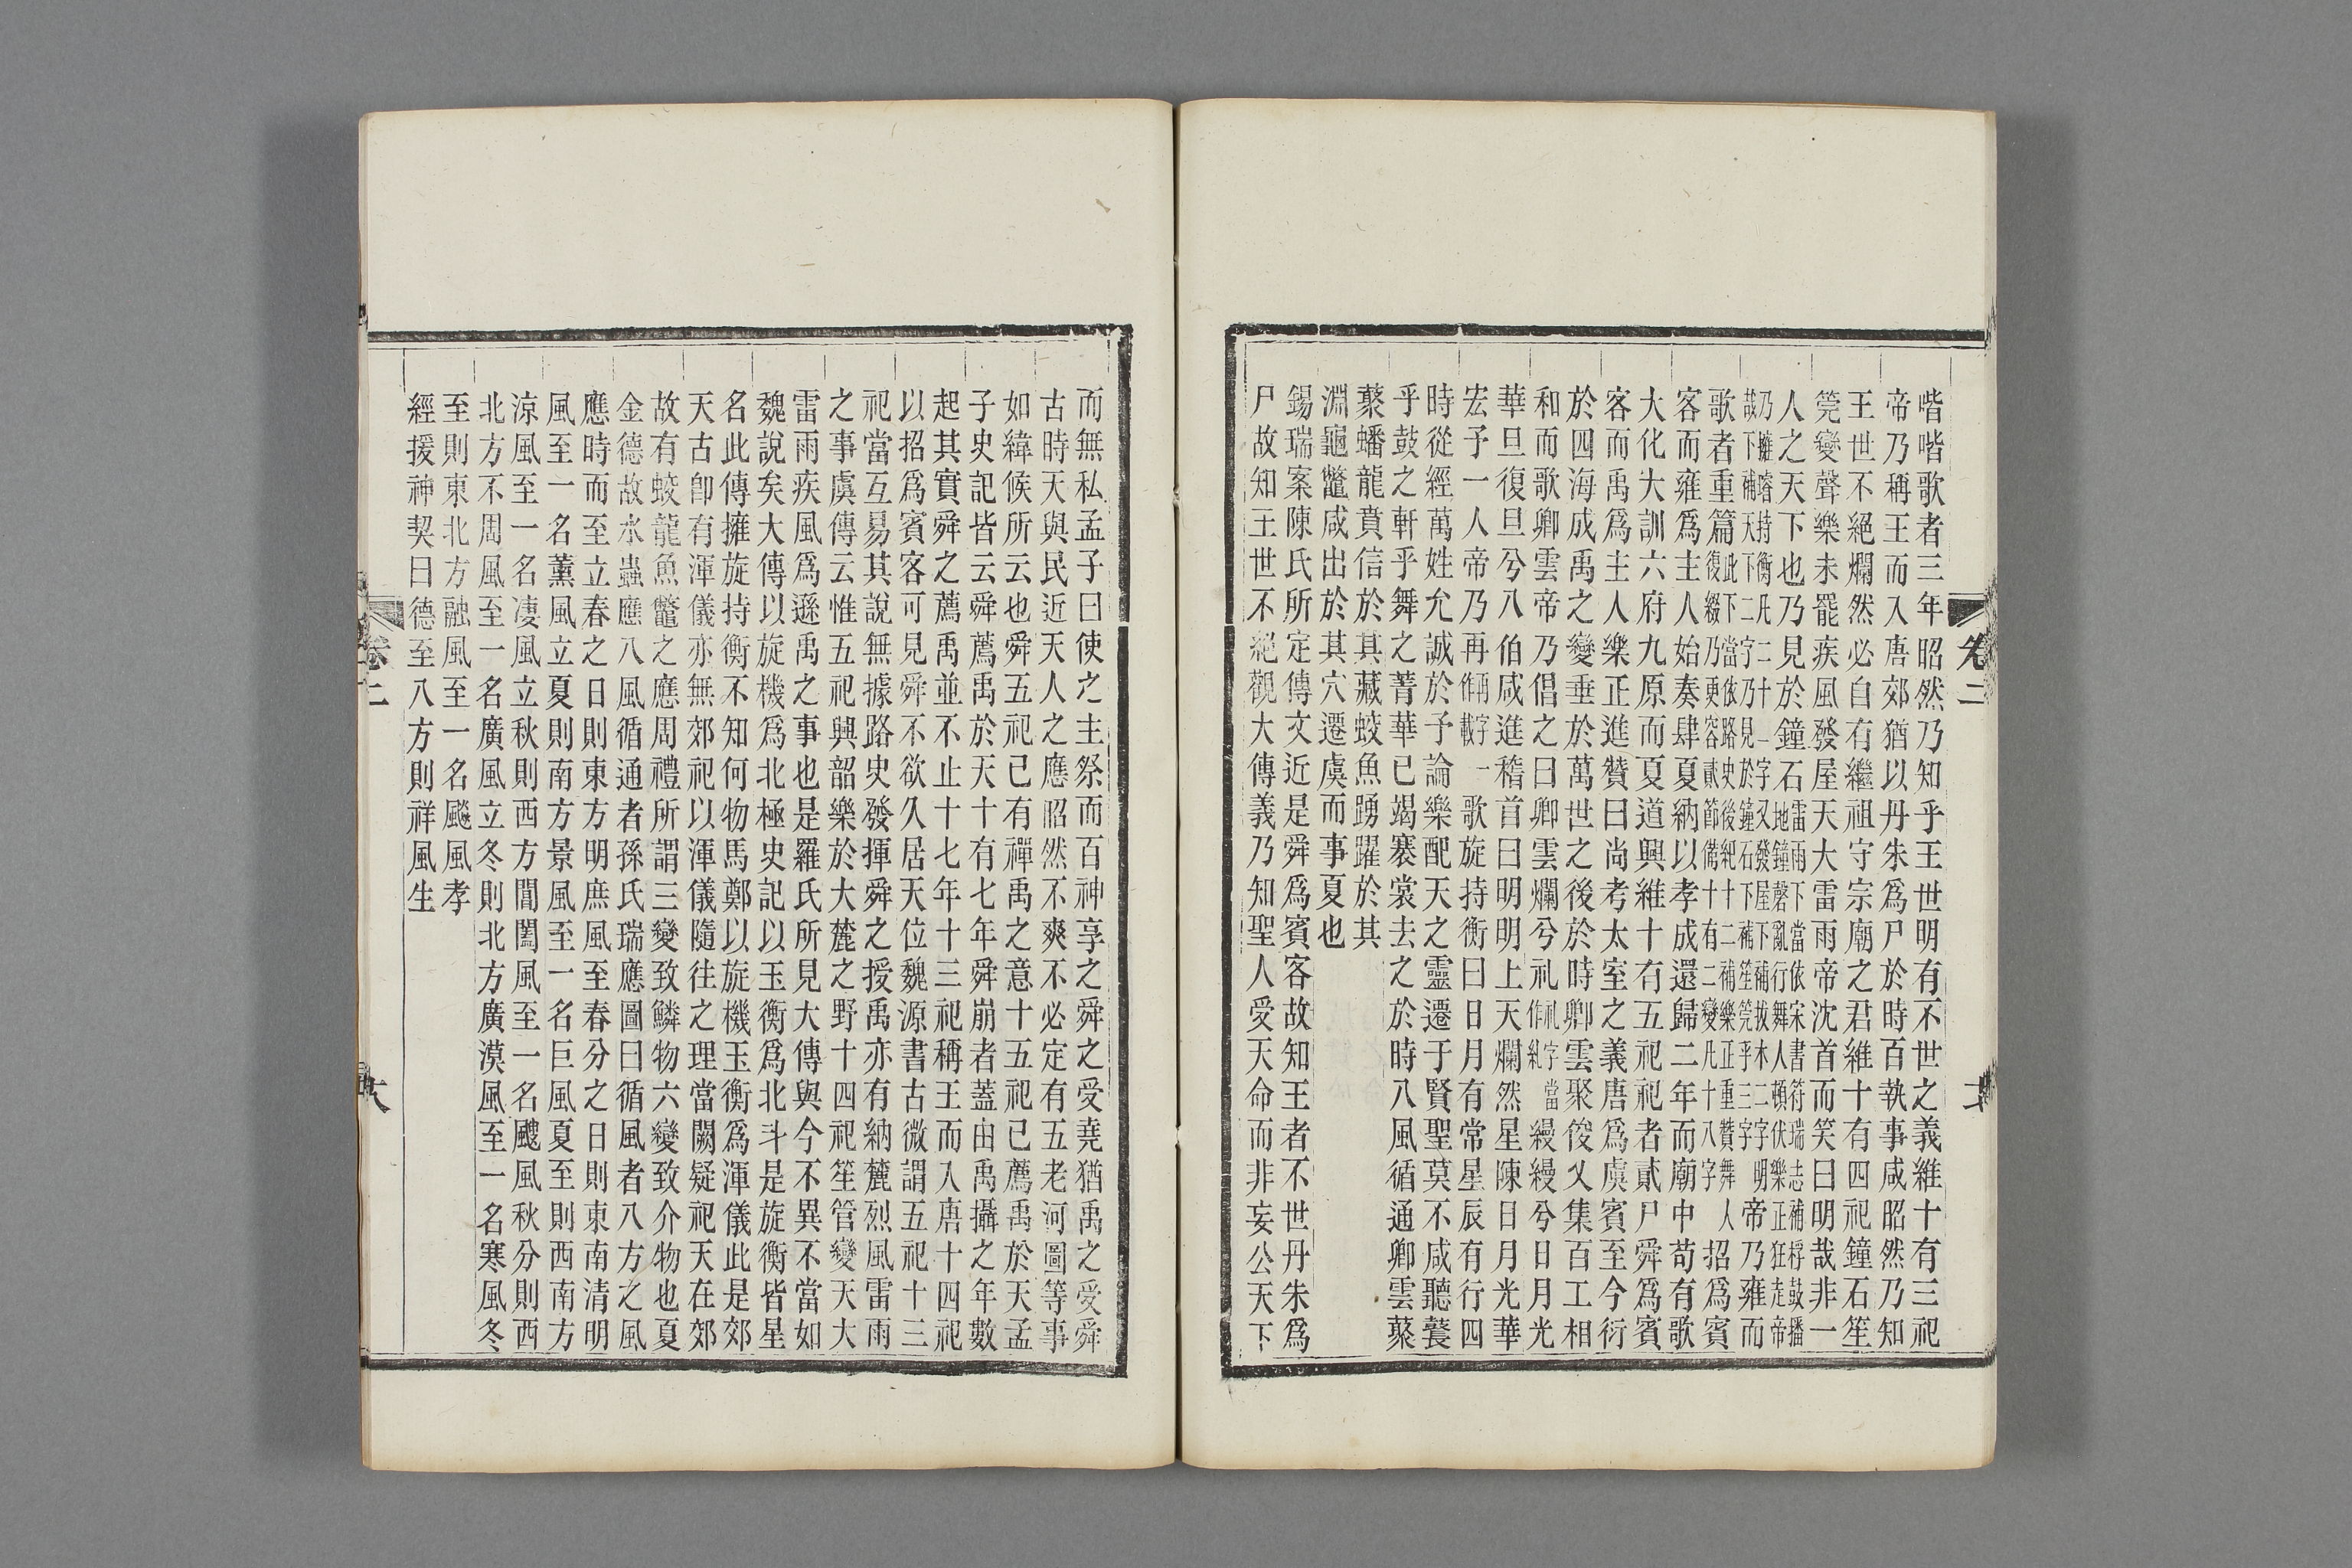 卷二
喈喈歌者三年昭然乃知乎王世明有不世之義維十有三祀
帝乃稱王而入唐郊猶以丹朱爲尸於時百執事咸昭然乃知
王世不絕爛然必自有繼祖守宗廟之君維十有四祀鐘石笙
筦變聲樂未罷疾風發屋天大雷雨帝沈首而笑曰明哉非一
人之天下也乃見於鐘石雷雨下當依宋書符瑞志補桴鼓播地鐘磬亂行舞人頓伏樂正狂走帝
乃擁璿持衡凡二十一字又發屋下補拔木二字明哉下補天下二字乃見於鐘石下補笙筦乎三字帝乃雍而
歌者重篇此下當依路史後紀十二補樂正重贊舞人復綴乃更容貳節備十有二變凡十八字招爲賓
客而雍爲主人始奏肆夏納以孝成還歸二年而廟中苟有歌
大化大訓六府九原而夏道興維十有五祀祀者貳尸舜爲賓
客而禹爲主人樂正進贊曰尚考太室之義唐爲虞賓至今衍
於四海成禹之變垂於萬世之後於時卿雲聚俊乂集百工相
和而歌卿雲帝乃倡之曰卿雲爛兮礼礼字當作糺縵縵兮日月光
華旦復旦兮八伯咸進稽首曰明明上天爛然星陳日月光華
宏予一人帝乃再再字一作載歌旋持衡曰日月有常星辰有行四
時從經萬姓允誠於予論樂配天之靈遷于賢聖莫不咸聽鼚
乎鼓之軒乎舞之菁華已竭褰裳去之於時八風循通卿雲藂
藂蟠龍賁信於其藏蛟魚踴躍於其
淵龜鼈咸出於其穴遷虞而事夏也
錫瑞案陳氏所定傳文近是舜爲賓客故知王者不世丹朱爲
尸故知王世不絕觀大傳義乃知聖人受天命而非妄公天下
而無私孟子曰使之主祭而百神享之舜之受堯猶禹之受舜
古時天與民近天人之應昭然不爽不必定有五老河圖等事
如緯候所云也舜五祀已有禪禹之意十五祀已薦禹於天孟
子史記皆云舜薦禹於天十有七年舜崩者蓋由禹攝之年數
起其實舜之薦禹並不止十七年十三祀稱王而入唐十四祀
以招爲賓客可見舜不欲久居天位魏源書古微謂五祀十三
祀當互易其說無據路史發揮舜之授禹亦有納麓烈風雷雨
之事虞傳云惟五祀興韶樂於大麓之野十四祀笙管變天大
雷雨疾風爲遜禹之事也是羅氏所見大傳與今不異不當如
魏說矣大傳以旋機爲北極史記以玉衡爲北斗是旋衡皆星
名此傳擁旋持衡不知何物馬鄭以旋機玉衡爲渾儀此是郊
天古卽有渾儀亦無郊祀以渾儀隨往之理當闕疑祀天在郊
故有蛟龍魚鼈之應周禮所謂三變致鱗物六變致介物也夏
金德故水蟲應八風循通者孫氏瑞應圖曰循風者八方之風
應時而至立春之日則東方明庶風至春分之日則東南清明
風至一名薰風立夏則南方景風至一名巨風夏至則西南方
涼風至一名凄風立秋則西方閶闔風至一名飂風秋分則西
北方不周風至一名廣風立冬則北方廣漠風至一名寒風冬
至則東北方融風至一名飈風孝
經援神契曰德至八方則祥風生
卷二
六